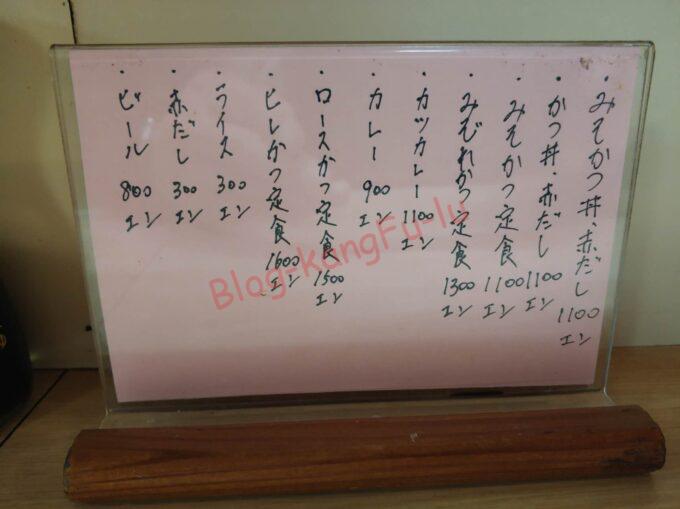 ・みそかつ丼、赤だし 1100エン
・かつ丼、赤だし 1100エン
・みそかつ定食 1100エン
・みぞれかつ定食 1300エン
・カツカレー 1100エン
・カレー 900エン
・ロースかつ定食 1500エン
・ヒレかつ定食 1600エン
・ライス 300エン
・赤だし 300エン
・ビール 800エン
Blog-kangFu-lu